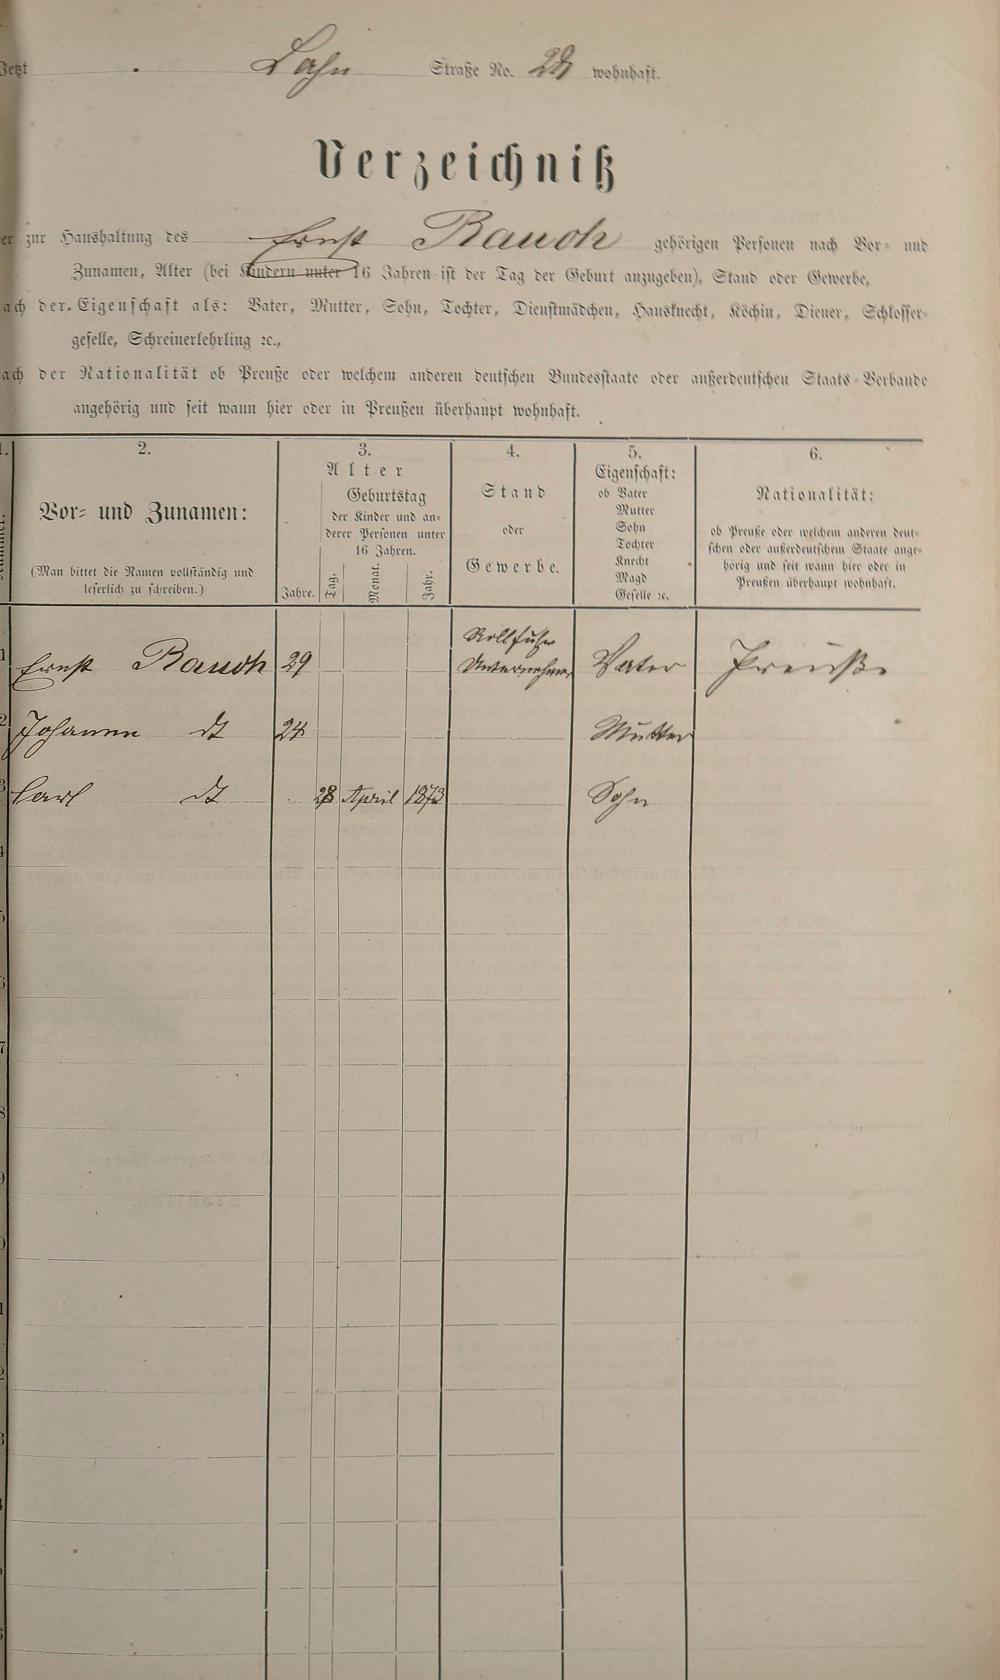 Jetzt Lahn Straße No. 28 wohnhaft.
Verzeichniß
er zur Haushaltung des Ernst Rauch gehörigen Personen nach Vor- und
Zunamen, Alter (bei Kindern unter 16 Jahren ist der Tag der Geburt anzugeben), Stand oder Gewerbe,
ach der Eigenschaft als: Vater, Mutter, Sohn, Tochter, Dienstmädchen, Hausknecht, Köchin, Diener, Schlosser-
geselle, Schreinerlehrling ꝛc.,
ach der Nationalität ob Preuße oder welchem anderen deutschen Bundesstaate oder außerdeutschen Staats-Verbande
angehörig und seit wann hier oder in Preußen überhaupt wohnhaft.
1. 2. 3. 4. 5. 6.
Vor- und Zunamen:
(Man bittet die Namen vollständig und
leserlich zu schreiben.)
Alter
Jahre.
Geburtstag
der Kinder und an-
derer Personen unter
16 Jahren.
Tag. Monat. Jahr.
Stand
oder
Gewerbe.
Eigenschaft:
ob Vater
Mutter
Sohn
Tochter
Knecht
Magd
Geselle ꝛc.
Nationalität:
ob Preuße oder welchem anderen deut-
schen oder außerdeutschem Staate ange-
hörig und seit wann hier oder in
Preußen überhaupt wohnhaft.
Rollfuhr
1 Ernst Rauch 29 Unternehmer Vater Preuße
2 Johanna dt 24 Mutter
3 Carl dt 28 April 1873 Sohn
4
5
6
7
8
9
0
1
2
3
4
5
6